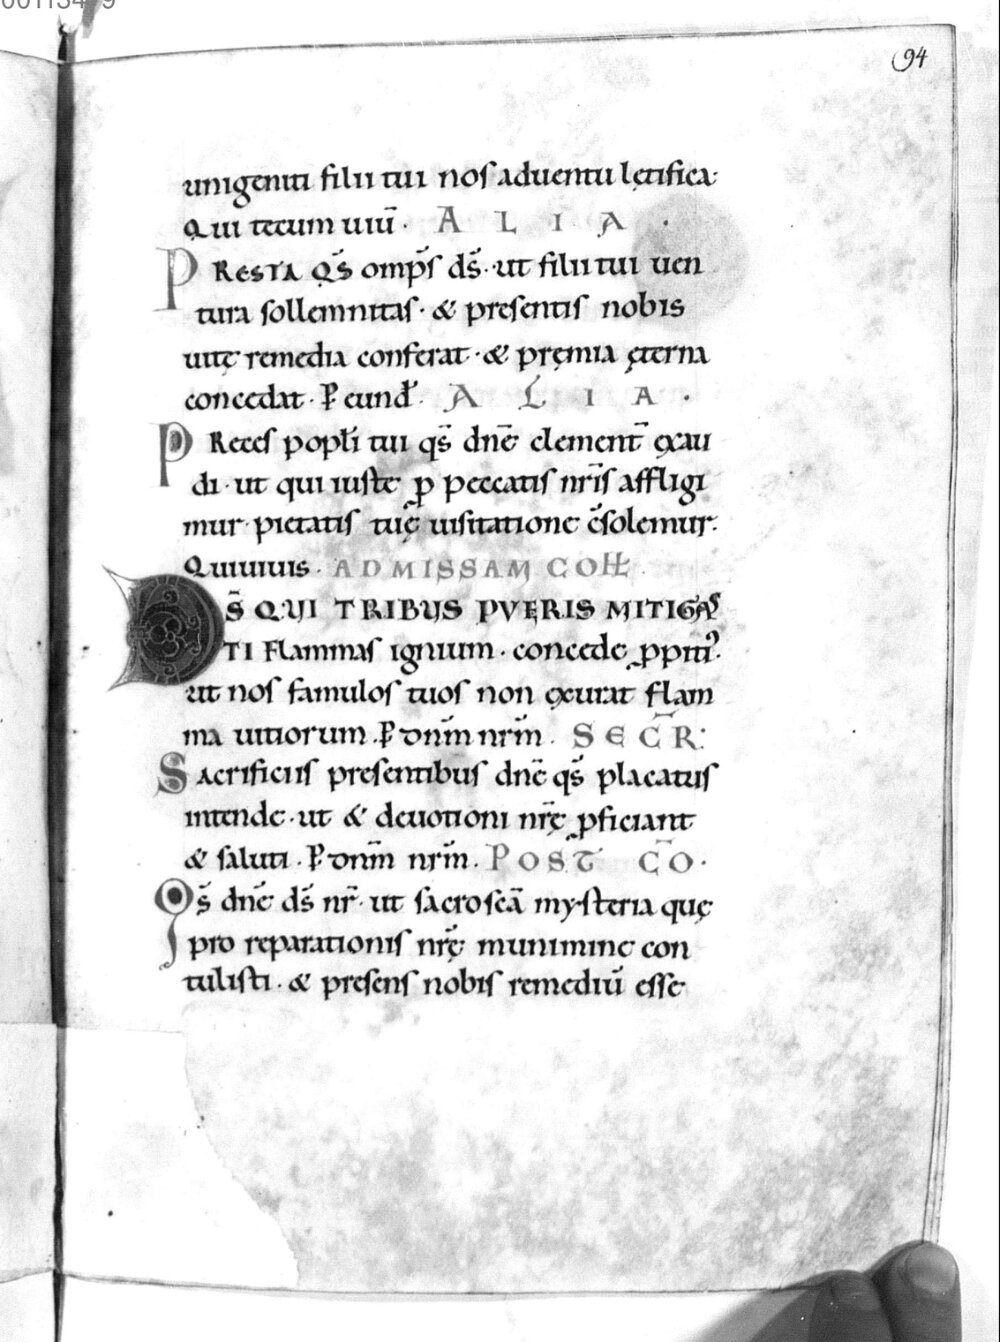 94
unigeniti filii tui nos aduentu lętifica·
Qui tecum uiū· ALIA·
PRESTA q̄s omp̄s d̄s· ut filii tui uen
tura sollemnitas· & presentis nobis
uitę remedia conferat· & pręmia ęterna
concedat· P̲ eund̄· ALIA·
PReces pop̄li tui q̄s dn̄e clement̄ exau
di· ut qui iuste p̲ peccatis nr̄is affligi
mur· pietatis tuę uisitatione c̄solemur·
Qui uiuis· AD MISSAM COŁŁ
D̄S QUI TRIBUS PVERIS MITIGAS
TI Flammas ignium· concede ꝓpiti᾽·
ut nos famulos tuos non exurat flam
ma uitiorum· P̲ dn̄m nr̄m· SECR̄:
Sacrificiis presentibus dn̄e q̄s placatus
intende· ut & deuotioni nr̄ę ꝓficiant
& saluti· P̲ dn̄m nr̄m· POST C̄O·
Q̄s dn̄e d̄s nr̄· ut sacrosc̄a mysteria quę
pro reparationis nr̄ę munimine con
tulisti· & presens nobis remediū esse